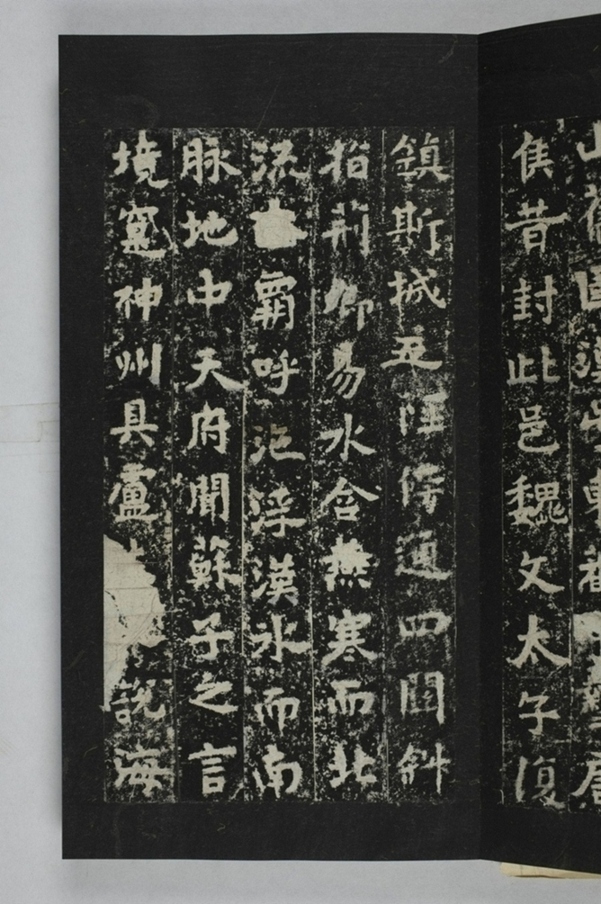 山舊國漢東蕃
侯昔封此邑魏文太子復
鎮斯城五陘傍通四關斜
指荊卿易水含燕寒而北
流霸呼沲浮漢冰而南
脉地中天府聞蘇子之言
境寔神州具盧說海